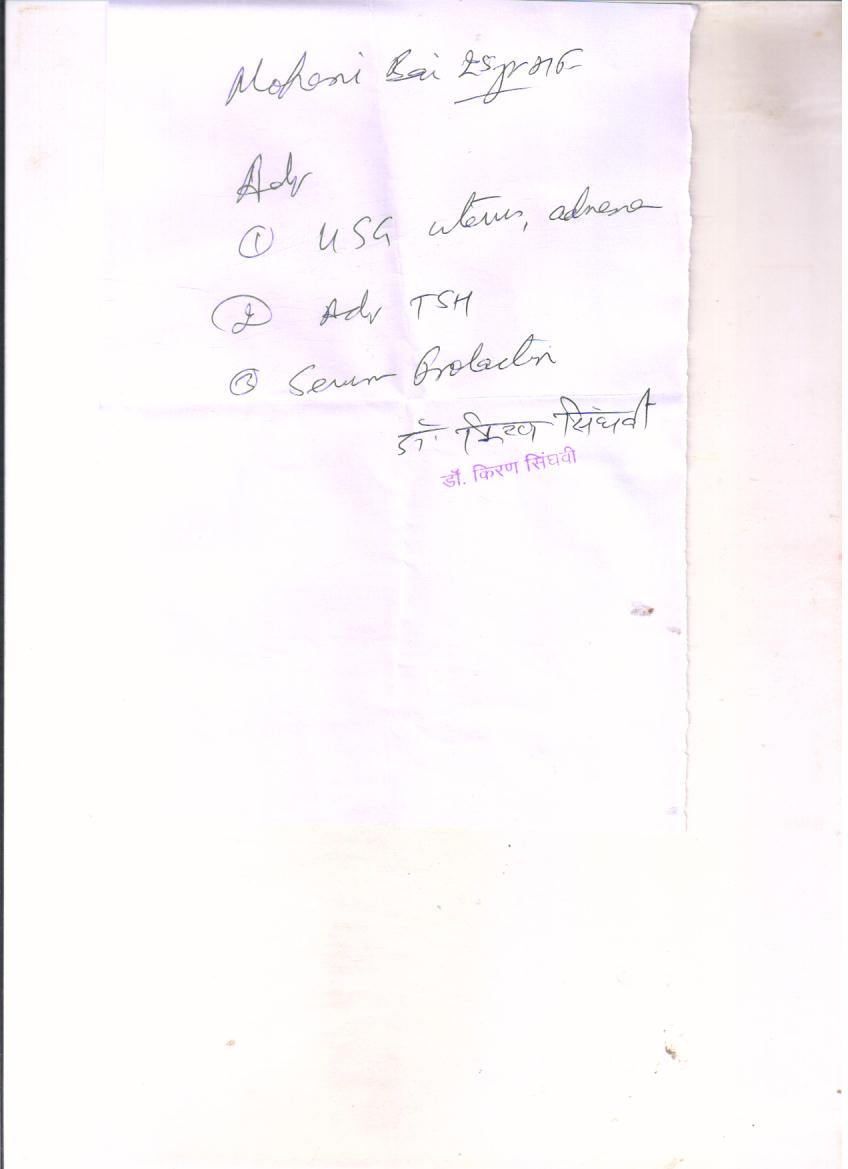 Mohani Bai 25yr
Adv
① USG uterus, adnexa
② Adv TSH
③ Serum Prolactin
डॉ. किरण सिंघवी
डॉ. किरण सिंघवी